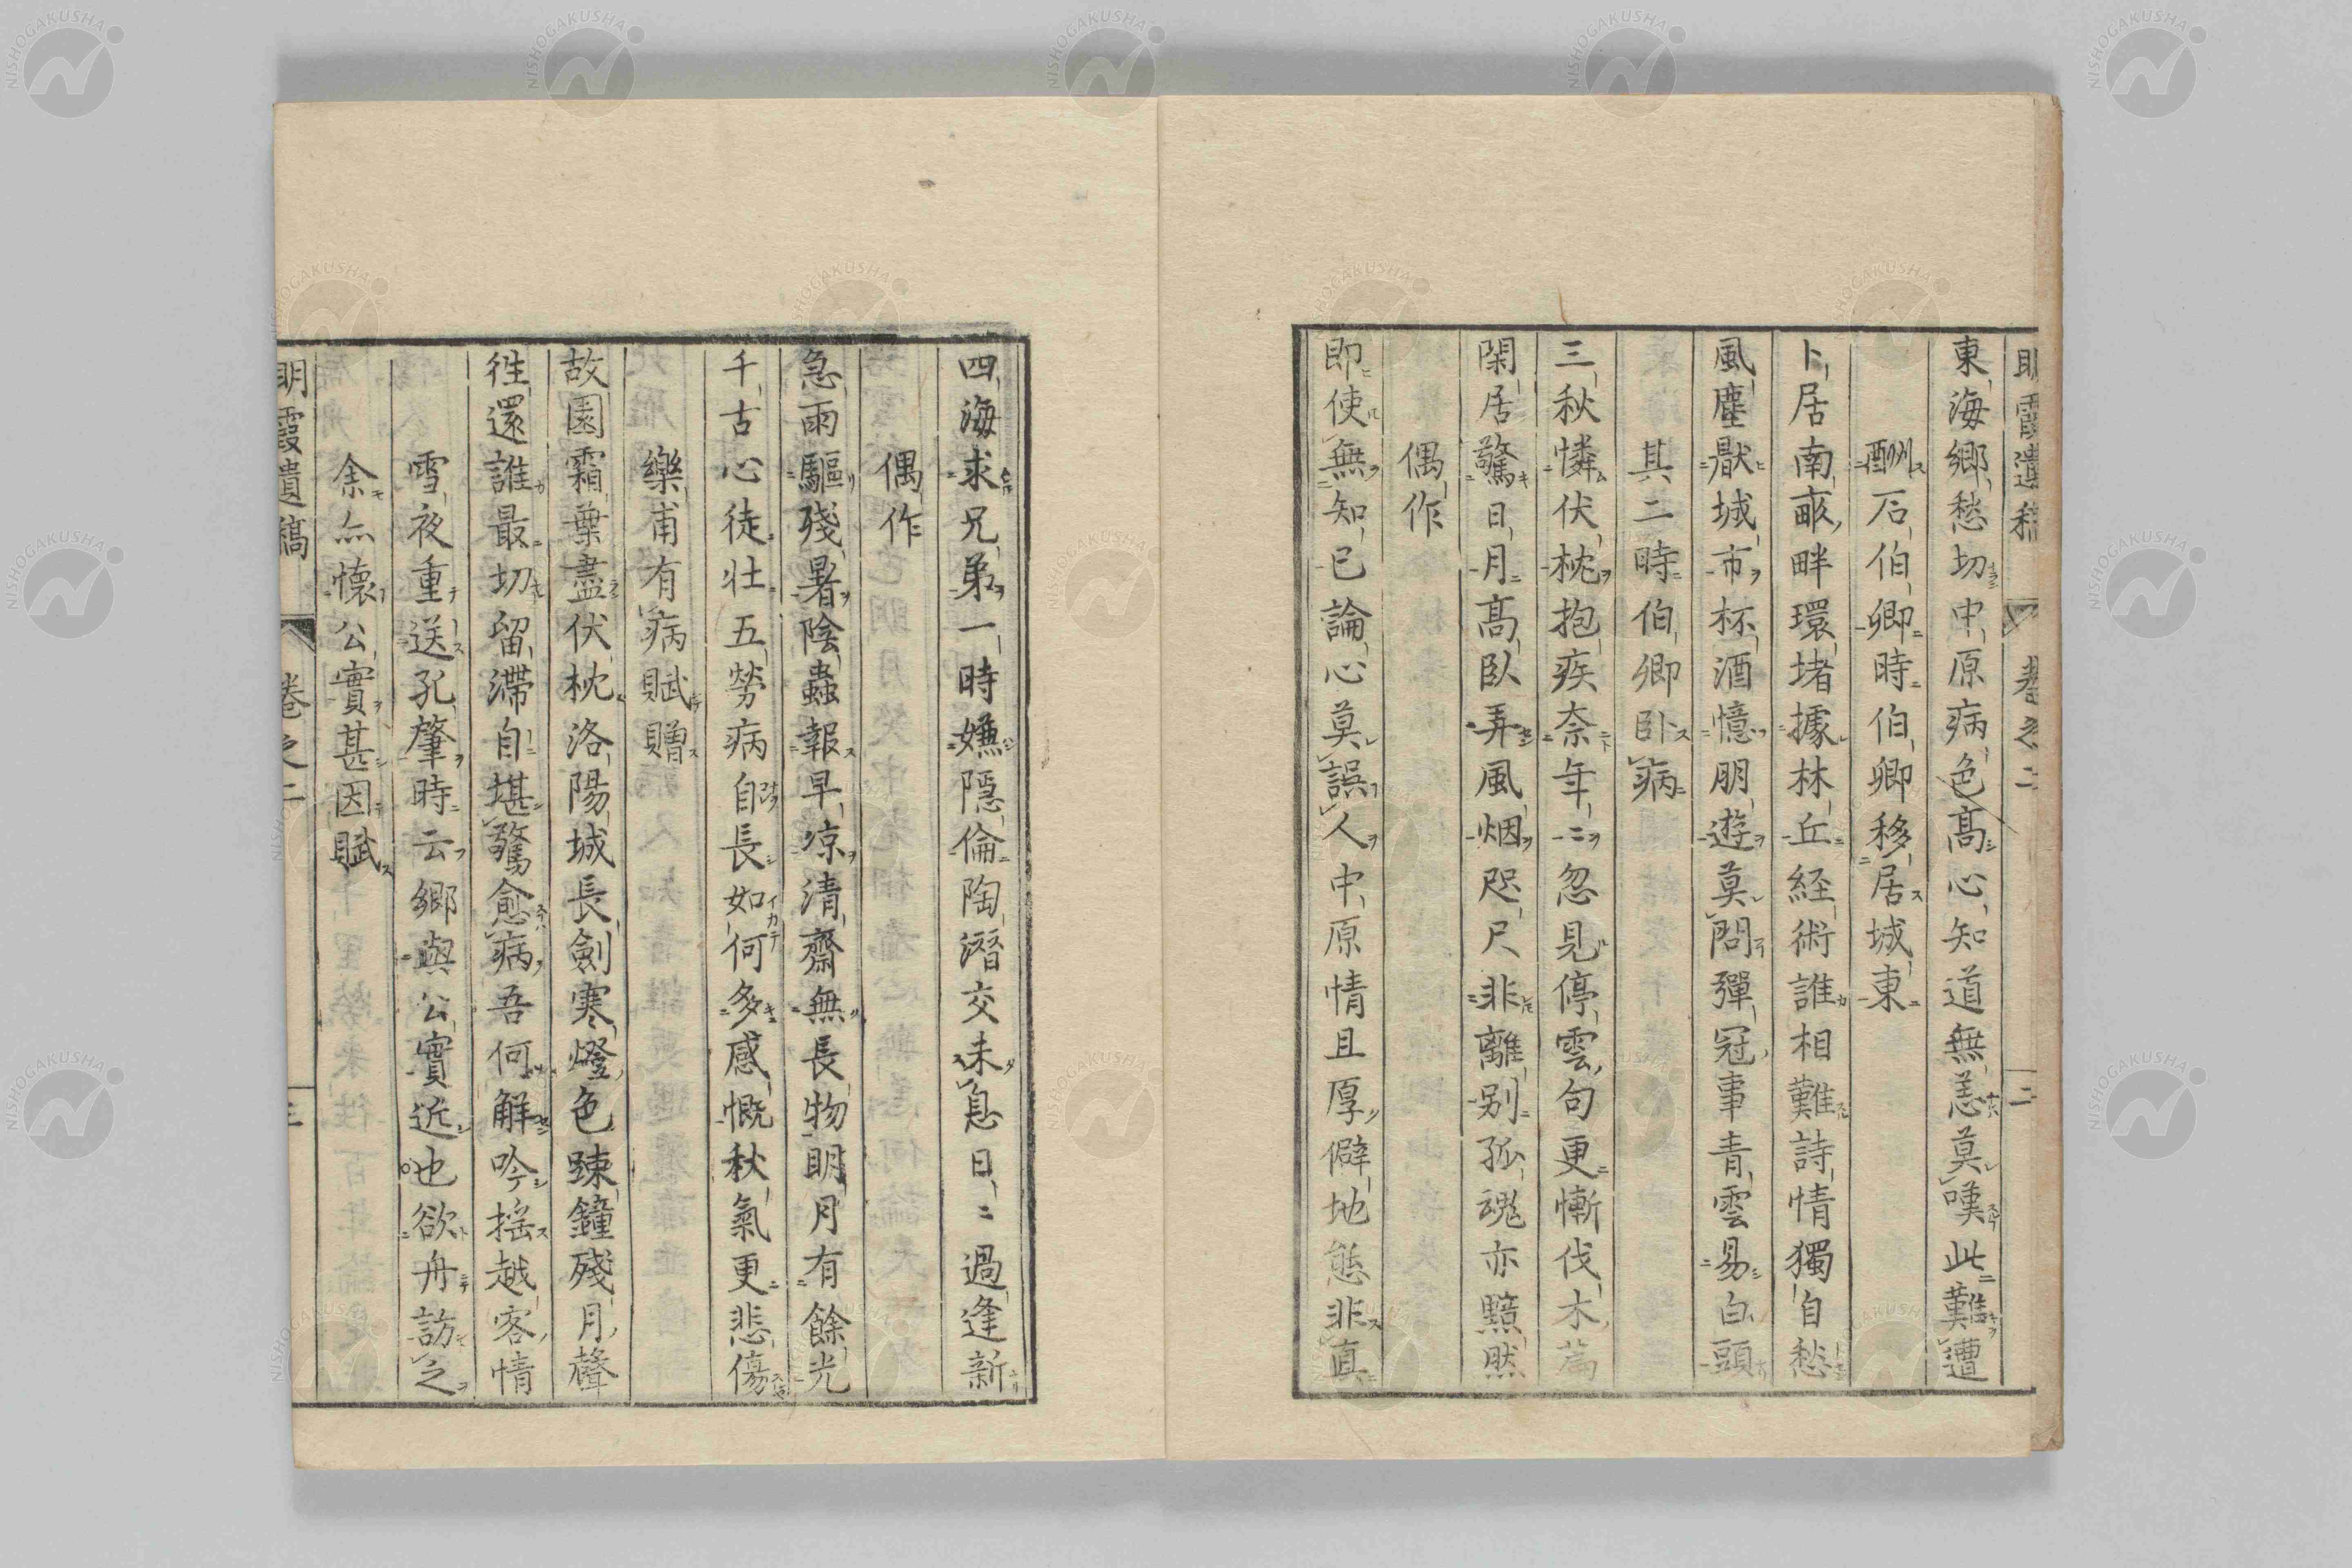 明霞遺稿 卷之二 二
東海鄉愁切中原病色高心知道無恙莫嘆此難遭
酬石伯卿時伯卿移居城東
卜居南畝畔環堵據林丘経術誰相難詩情獨自愁
風塵厭城市杯酒憶朋遊莫問彈冠事青雲易白頭
其二時伯卿卧病
三秋憐伏枕抱疾奈年〻忽見停雲句更慚伐木篇
閑居驚日月高臥弄風烟咫尺非離別孤魂亦黯然
偶作
即使無知已論心莫誤人中原情且厚僻地態非真
四海求兄弟一時嫌隱倫陶潛交未息日〻過逢新
偶作
急雨驅殘暑陰蟲報早凉清齋無長物明月有餘光
千古心徒壮五勞病自長如何多感慨秋氣更悲傷
樂甫有病賦贈
故園霜葉盡伏枕洛陽城長劍寒燈色踈鐘殘月聲
徃還誰最切留滯自堪驚愈病吾何解吟揺越客情
雪夜重送孔肇時云鄉與公實近也欲舟訪之
余亦懷公實甚因賦
明霞遺稿 卷之二 三
NISHOGAKUSHA